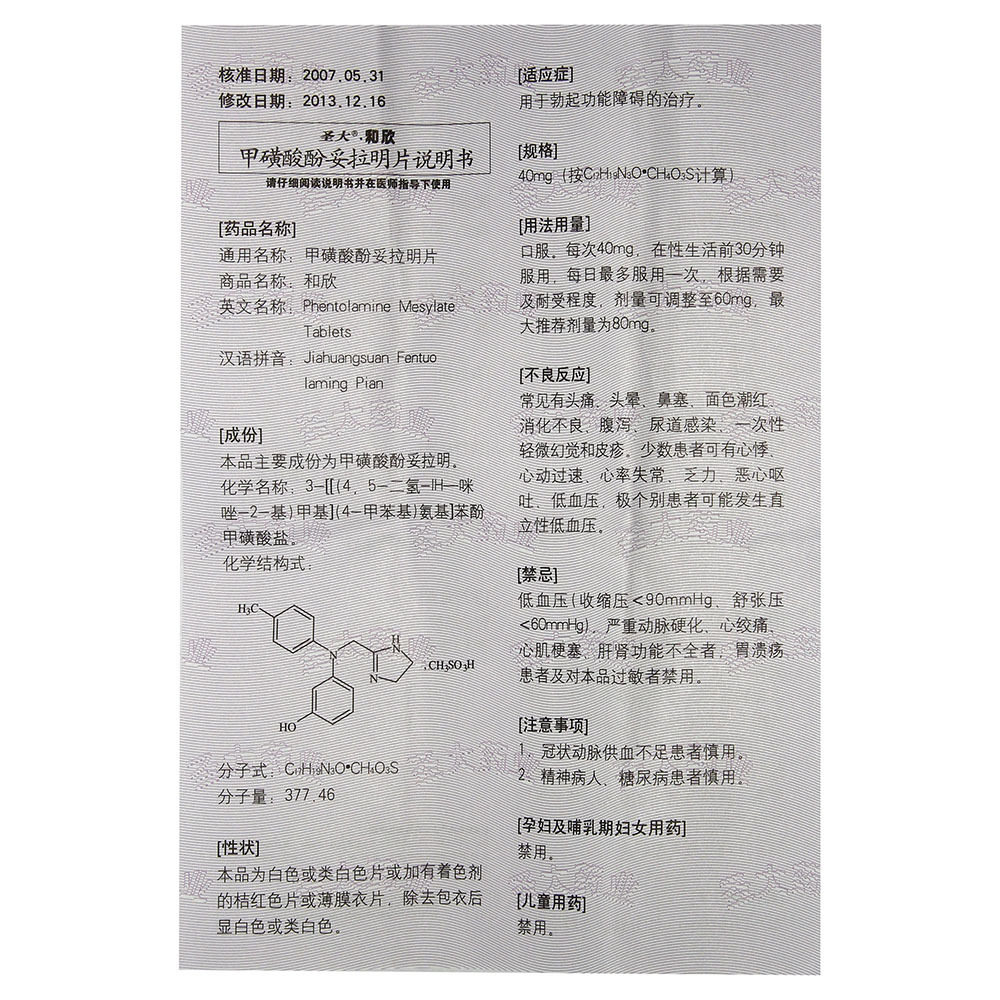 核准日期：2007.05.31
修改日期：2013.12.16
圣大®·和欣
甲磺酸酚妥拉明片说明书
请仔细阅读说明书并在医师指导下使用
[药品名称]
通用名称：甲磺酸酚妥拉明片
商品名称：和欣
英文名称：Phentolamine Mesylate
Tablets
汉语拼音：Jiahuangsuan Fentuo
laming Pian
[成份]
本品主要成份为甲磺酸酚妥拉明。
化学名称：3-[[(4，5-二氢-1H-咪
唑-2-基)甲基](4-甲苯基)氨基]苯酚
甲磺酸盐。
化学结构式：
H3C
N
H
N
N
.CH3SO3H
HO
分子式：C17H19N3O•CH4O3S
分子量：377.46
[性状]
本品为白色或类白色片或加有着色剂
的桔红色片或薄膜衣片，除去包衣后
显白色或类白色。
[适应症]
用于勃起功能障碍的治疗。
[规格]
40mg（按C17H19N3O•CH4O3S计算）
[用法用量]
口服。每次40mg，在性生活前30分钟
服用，每日最多服用一次，根据需要
及耐受程度，剂量可调整至60mg，最
大推荐剂量为80mg。
[不良反应]
常见有头痛、头晕、鼻塞、面色潮红、
消化不良、腹泻、尿道感染、一次性
轻微幻觉和皮疹。少数患者可有心悸、
心动过速、心率失常、乏力、恶心呕
吐、低血压，极个别患者可能发生直
立性低血压。
[禁忌]
低血压(收缩压<90mmHg、舒张压
<60mmHg)，严重动脉硬化、心绞痛、
心肌梗塞、肝肾功能不全者，胃溃疡
患者及对本品过敏者禁用。
[注意事项]
1、冠状动脉供血不足患者慎用。
2、精神病人、糖尿病患者慎用。
[孕妇及哺乳期妇女用药]
禁用。
[儿童用药]
禁用。